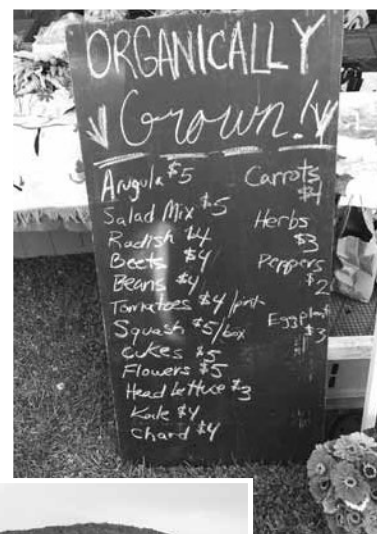 ORGANICALLY
Grown!
Arugula $5
Salad Mix $5
Radish $4
Beets $4
Beans $4
Tomatoes $4/pint
Squash $5/box
Cukes $5
Flowers $5
Head Lettuce $3
Kale $4
Chard $4
Carrots
$4
Herbs
$3
Peppers
$2
Eggplant
$3